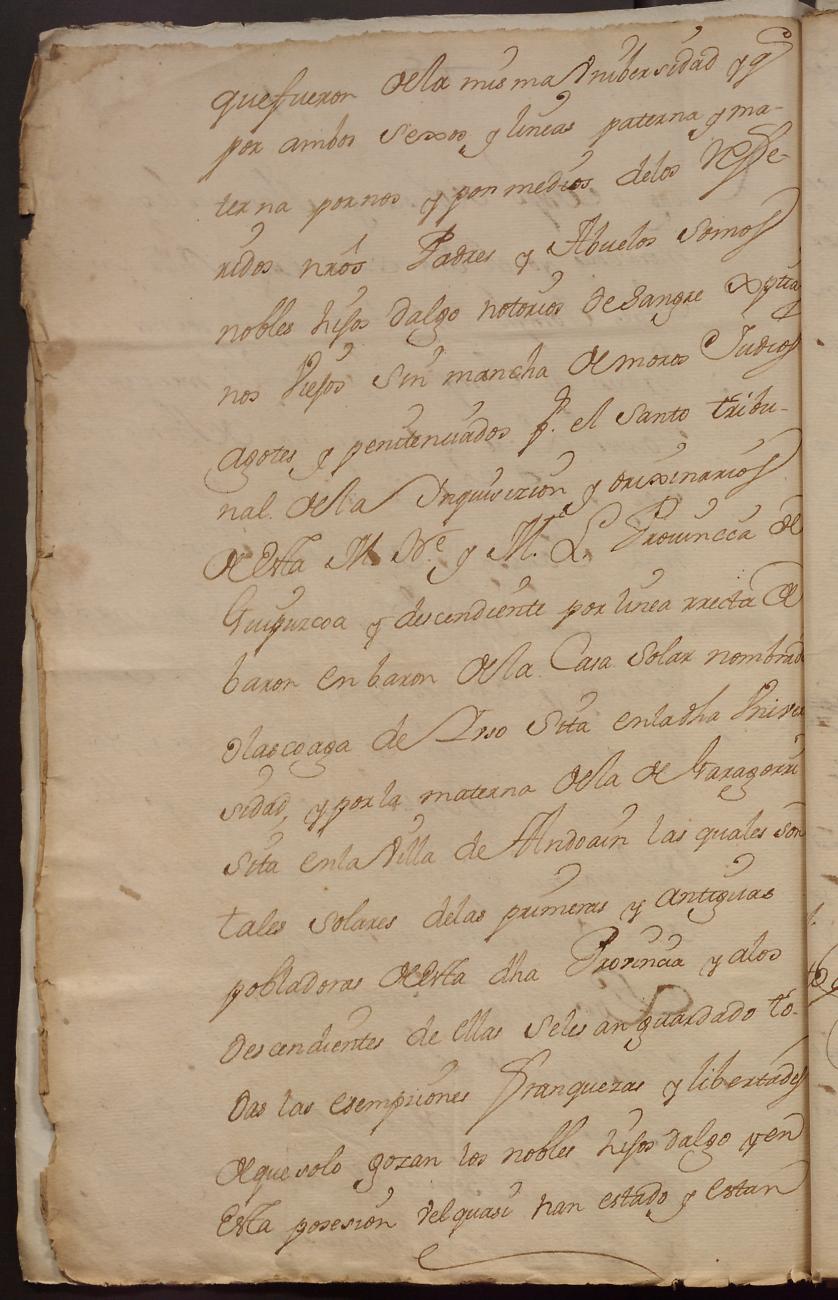 quefueron dela misma Vnibersidad y q̃
por ambos sexos y lineas paterna y ma-
terna por nos y por medios delos Refe-
ridos nr̃os Padres y Abuelos somos
nobles hijos dalgo notorios de sangre xptia
nos Viejos sin mancha de moros Judios
agotes y penitenciados p.r el santo tribu-
nal dela Inquisicion y orixinarios
de esta M. N.e y M. L. Provincia de
Guipuzcoa y descendiente por linea rrecta de
baron en baron dela Casa solar nombrada
olascoaga de Yrso sita enladha Vniver
sidad, y por la materna dela de Garagorri
sita enla Villa de Andoain las quales son
tales solares delas primeras y antiguas
pobladoras de esta dha Provincia y alos
descendientes de ellas seles an guardado to-
das las esempciones franquezas y libertades
de que solo gozan los nobles hijos dalgo y en
esta posesion velquasi han estado y estan